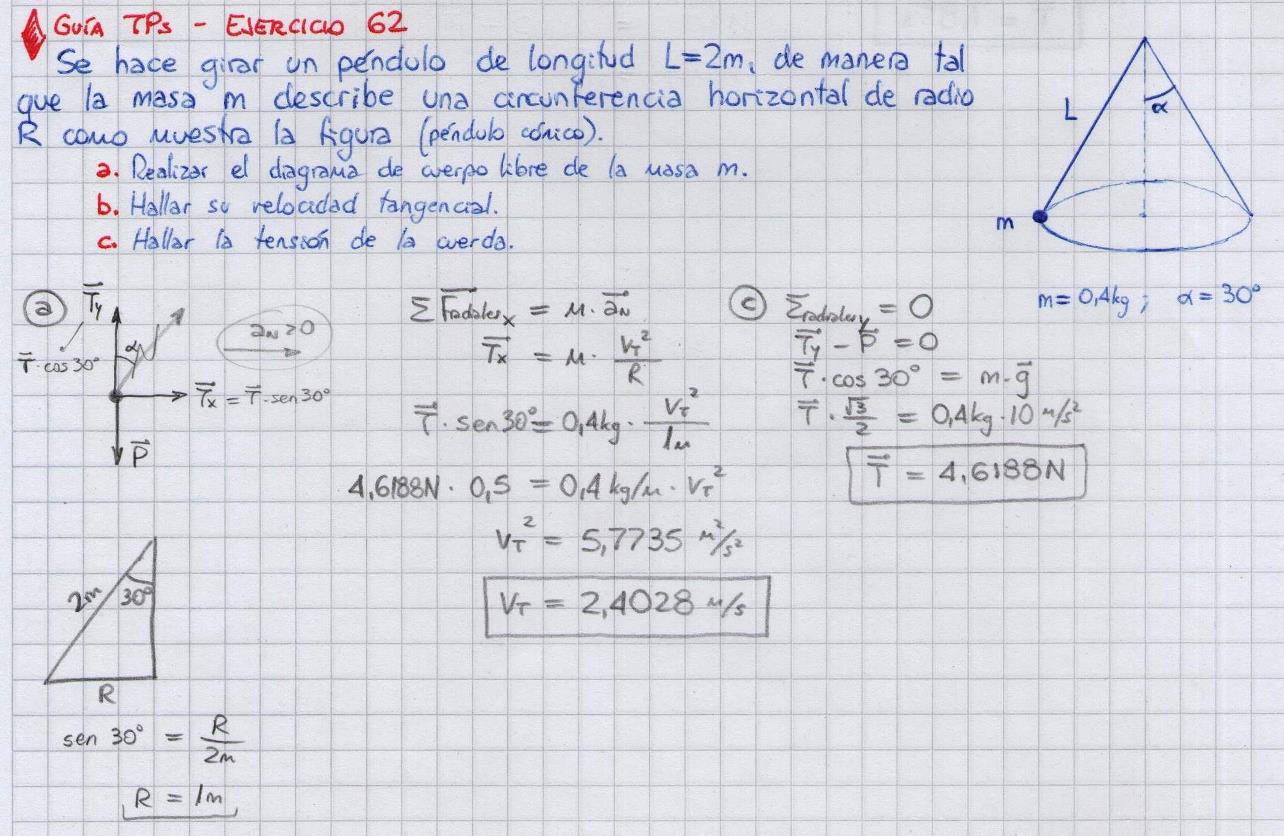 GUÍA TPs - EJERCICIO 62
Se hace girar un péndulo de longitud L=2m, de manera tal
que la masa m describe una circunferencia horizontal de radio
R como muestra la figura (péndulo cónico).
a. Realizar el diagrama de cuerpo libre de la masa m.
b. Hallar su velocidad tangencial.
c. Hallar la tensión de la cuerda.
L
α
m
m = 0,4kg ; α = 30°
a
T⃗y
α
T⃗·cos 30°
aN > 0
T⃗x = T⃗·sen 30°
P⃗
Σ F⃗radialesx = m · a⃗N
T⃗x = m · VT²/R
T⃗ · sen 30° = 0,4kg · VT²/1m
4,6188N · 0,5 = 0,4 kg/m · VT²
VT² = 5,7735 m²/s²
VT = 2,4028 m/s
c
Σradialesy = 0
T⃗y - P⃗ = 0
T⃗ · cos 30° = m · g⃗
T⃗ · √3/2 = 0,4kg · 10 m/s²
T⃗ = 4,6188N
2m
30°
R
sen 30° = R/2m
R = 1m